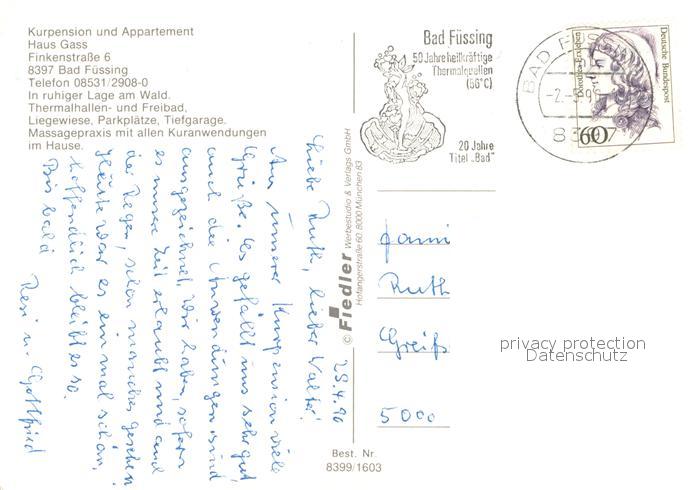 Kurpension und Appartement
Haus Gass
Finkenstraße 6
8397 Bad Füssing
Telefon 08531/2908-0
In ruhiger Lage am Wald.
Thermalhallen- und Freibad,
Liegewiese, Parkplätze, Tiefgarage.
Massagepraxis mit allen Kuranwendungen
im Hause.
29.4.90
Liebe Ruth, lieber Walter!
Aus unserer Kurpension viele
Grüße. Es gefällt uns sehr gut,
auch die Anwendungen sind
ausgezeichnet. Wir haben, sofern
es unsere Zeit erlaubt und auch
der Regen, schon manches gesehen.
Heute war es einmal schön,
hoffentlich bleibt es so.
Bis bald
Resi u. Gottfried
© Fiedler Werbestudio & Verlags GmbH
Hofangerstraße 60, 8000 München 83
Best. Nr.
8399/1603
Bad Füssing
50 Jahre heilkräftige
Thermalquellen
(56°C)
20 Jahre
Titel „Bad"
BAD FÜSSING
8397
Deutsche Bundespost
60
Fami
Ruth
Greifs
5000
privacy protection
Datenschutz